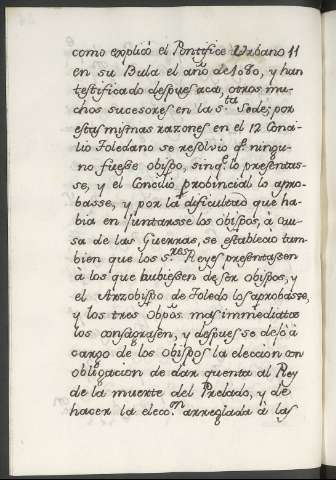 como explicó el Pontifice Urbano 11
en su Bula el año de 1080, y han
testificado despues acá, otros mu-
chos sucesores en la S.ta Sede; por
estas mismas razones en el 12 Conci-
lio Toledano se resolvio q.e ningu-
no fuesse obispo, sin q.e lo presentas-
se, y el Concilio probincial lo apro-
basse, y por la dificultad que ha-
bia en juntarsse los Obispos, à cau-
sa de las Guerras, se establecio tam-
bien que los S.res Reyes presentasen
à los que hubiessen de ser obispos, y
el Arzobispo de Toledo los aprobasse,
y los tres Obpos. mas immediatos
los consagrasen, y despues se dejó à
cargo de los Obispos la eleccion con
obligacion de dar quenta al Rey
de la muerte del Prelado, y de
hacer la elecc.on arreglada à las